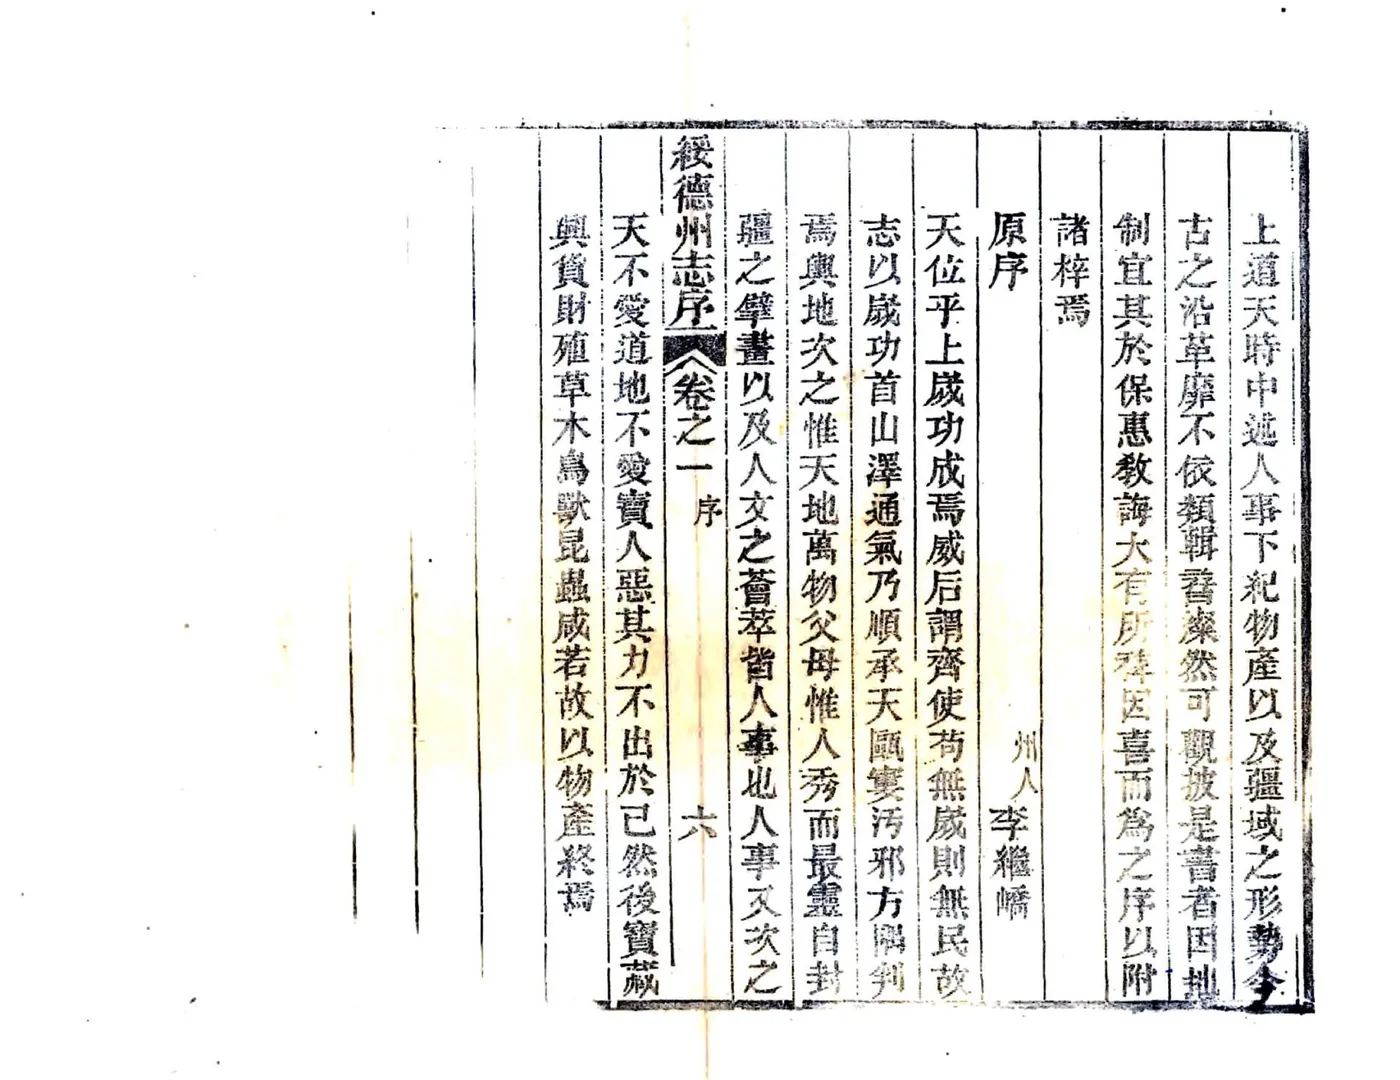 上道天時中述人事下紀物產以及疆域之形勢今
古之沿革靡不依類輯晉燦然可觀披是書者因地
制宜其於保惠教誨大有所裨因喜而為之序以附
諸梓焉
原序
州人李繼嶠
天位乎上嵗功成焉威后謂齊使苟無嵗則無民故
志以嵗功首山澤通氣乃順承天甌窶汚邪方隅判
焉輿地次之惟天地萬物父母惟人秀而最靈自封
疆之擘畫以及人文之薈萃皆人事也人事又次之
綏德州志序 卷之一 序 六
天不愛道地不愛寶人惡其力不出於己然後寶藏
興貨財殖草木鳥獸昆蟲咸若故以物產終焉